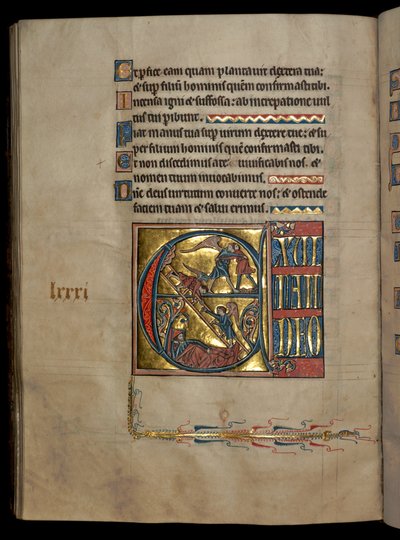 Et pfice eam quam plantauit dextera tua:
et sup filiū hominis quem confirmasti tibi.
Incensa igni et suffossa: ab increpatione uul
tus tui pibunt.
Fiat manus tua sup uirum dextere tue: et su
per filium hominis quē confirmasti tibi.
Et non discedimus a te uiuificabis nos: et
nomen tuum inuocabimus.
Dñe deus uirtutum conuerte nos: et ostende
faciem tuam et salui erimus.
lxxxi
E
DEO